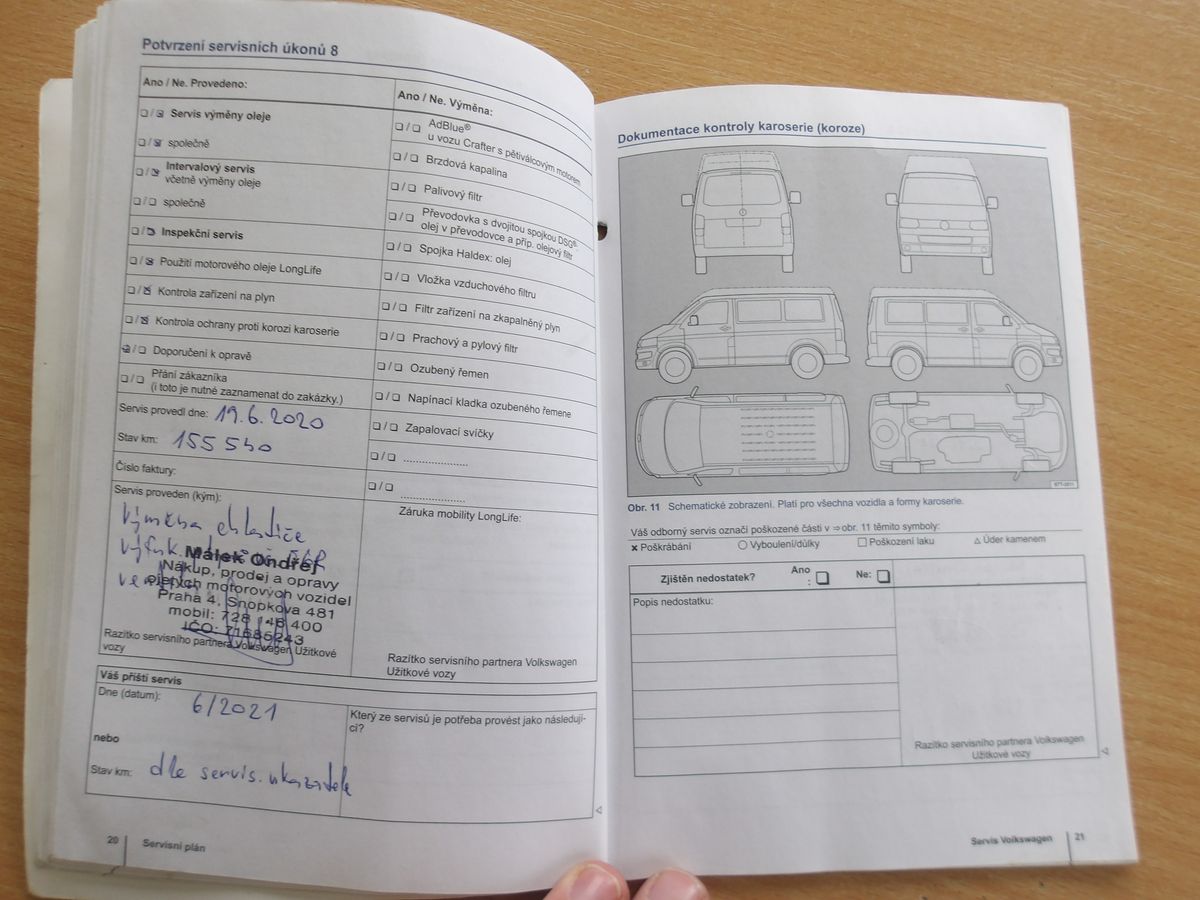 Potvrzení servisních úkonů 8
Ano / Ne. Provedeno:
Servis výměny oleje
společně
Intervalový servis
včetně výměny oleje
společně
Inspekční servis
Použití motorového oleje LongLife
Kontrola zařízení na plyn
Kontrola ochrany proti korozi karoserie
Doporučení k opravě
Přání zákazníka
(i toto je nutné zaznamenat do zakázky.)
Servis provedl dne: 19.6.2020
Stav km: 155 540
Číslo faktury:
Servis proveden (kým):
Výměna chladiče
výfuk.
Málek Ondřej
Nákup, prodej a opravy
ojetých motorových vozidel
Praha 4, Snopkova 481
mobil: 728 148 400
IČO: 71685243
Razítko servisního partnera Volkswagen Užitkové
vozy
Ano / Ne. Výměna:
AdBlue®
u vozu Crafter s pětiválcovým motorem
Brzdová kapalina
Palivový filtr
Převodovka s dvojitou spojkou DSG®:
olej v převodovce a příp. olejový filtr
Spojka Haldex: olej
Vložka vzduchového filtru
Filtr zařízení na zkapalněný plyn
Prachový a pylový filtr
Ozubený řemen
Napínací kladka ozubeného řemene
Zapalovací svíčky
Záruka mobility LongLife:
Razítko servisního partnera Volkswagen
Užitkové vozy
Váš příští servis
Dne (datum): 6/2021
nebo
Stav km: dle servis. ukazatele
Který ze servisů je potřeba provést jako následují-
cí?
20 Servisní plán
Dokumentace kontroly karoserie (koroze)
B7T-0011
Obr. 11 Schematické zobrazení. Platí pro všechna vozidla a formy karoserie.
Váš odborný servis označí poškozené části v ⇒ obr. 11 těmito symboly:
× Poškrábání ○ Vyboulení/důlky □ Poškození laku △ Úder kamenem
Zjištěn nedostatek? Ano
: Ne:
Popis nedostatku:
Razítko servisního partnera Volkswagen
Užitkové vozy
Servis Volkswagen 21